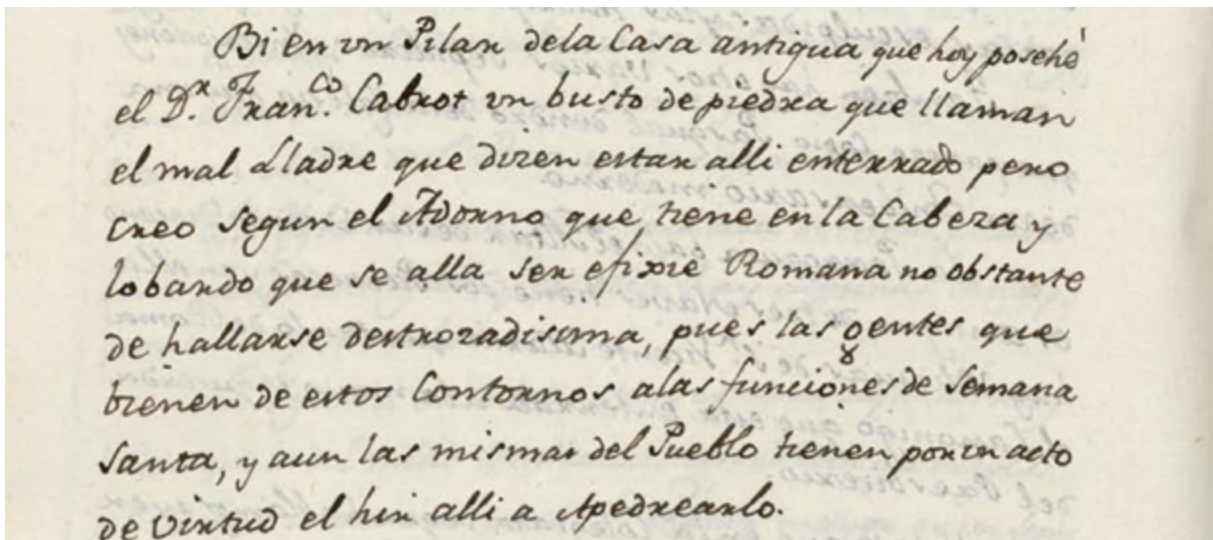 Bi en vn Pilar dela Casa antigua que hoy posehè
el D.r Fran.co Cabrot vn busto de piedra que llaman
el mal Lladre que dizen estar alli enterrado pero
creo segun el Adorno que tiene en la Cabeza y
lo bardo que se alla ser efixie Romana no obstante
de hallarse destrozadisima, pues las gentes que
bienen de estos Contornos a las funciones de Semana
Santa, y aun las mismas del Pueblo tienen por vn acto
de virtud el hir alli a Apedrearlo.